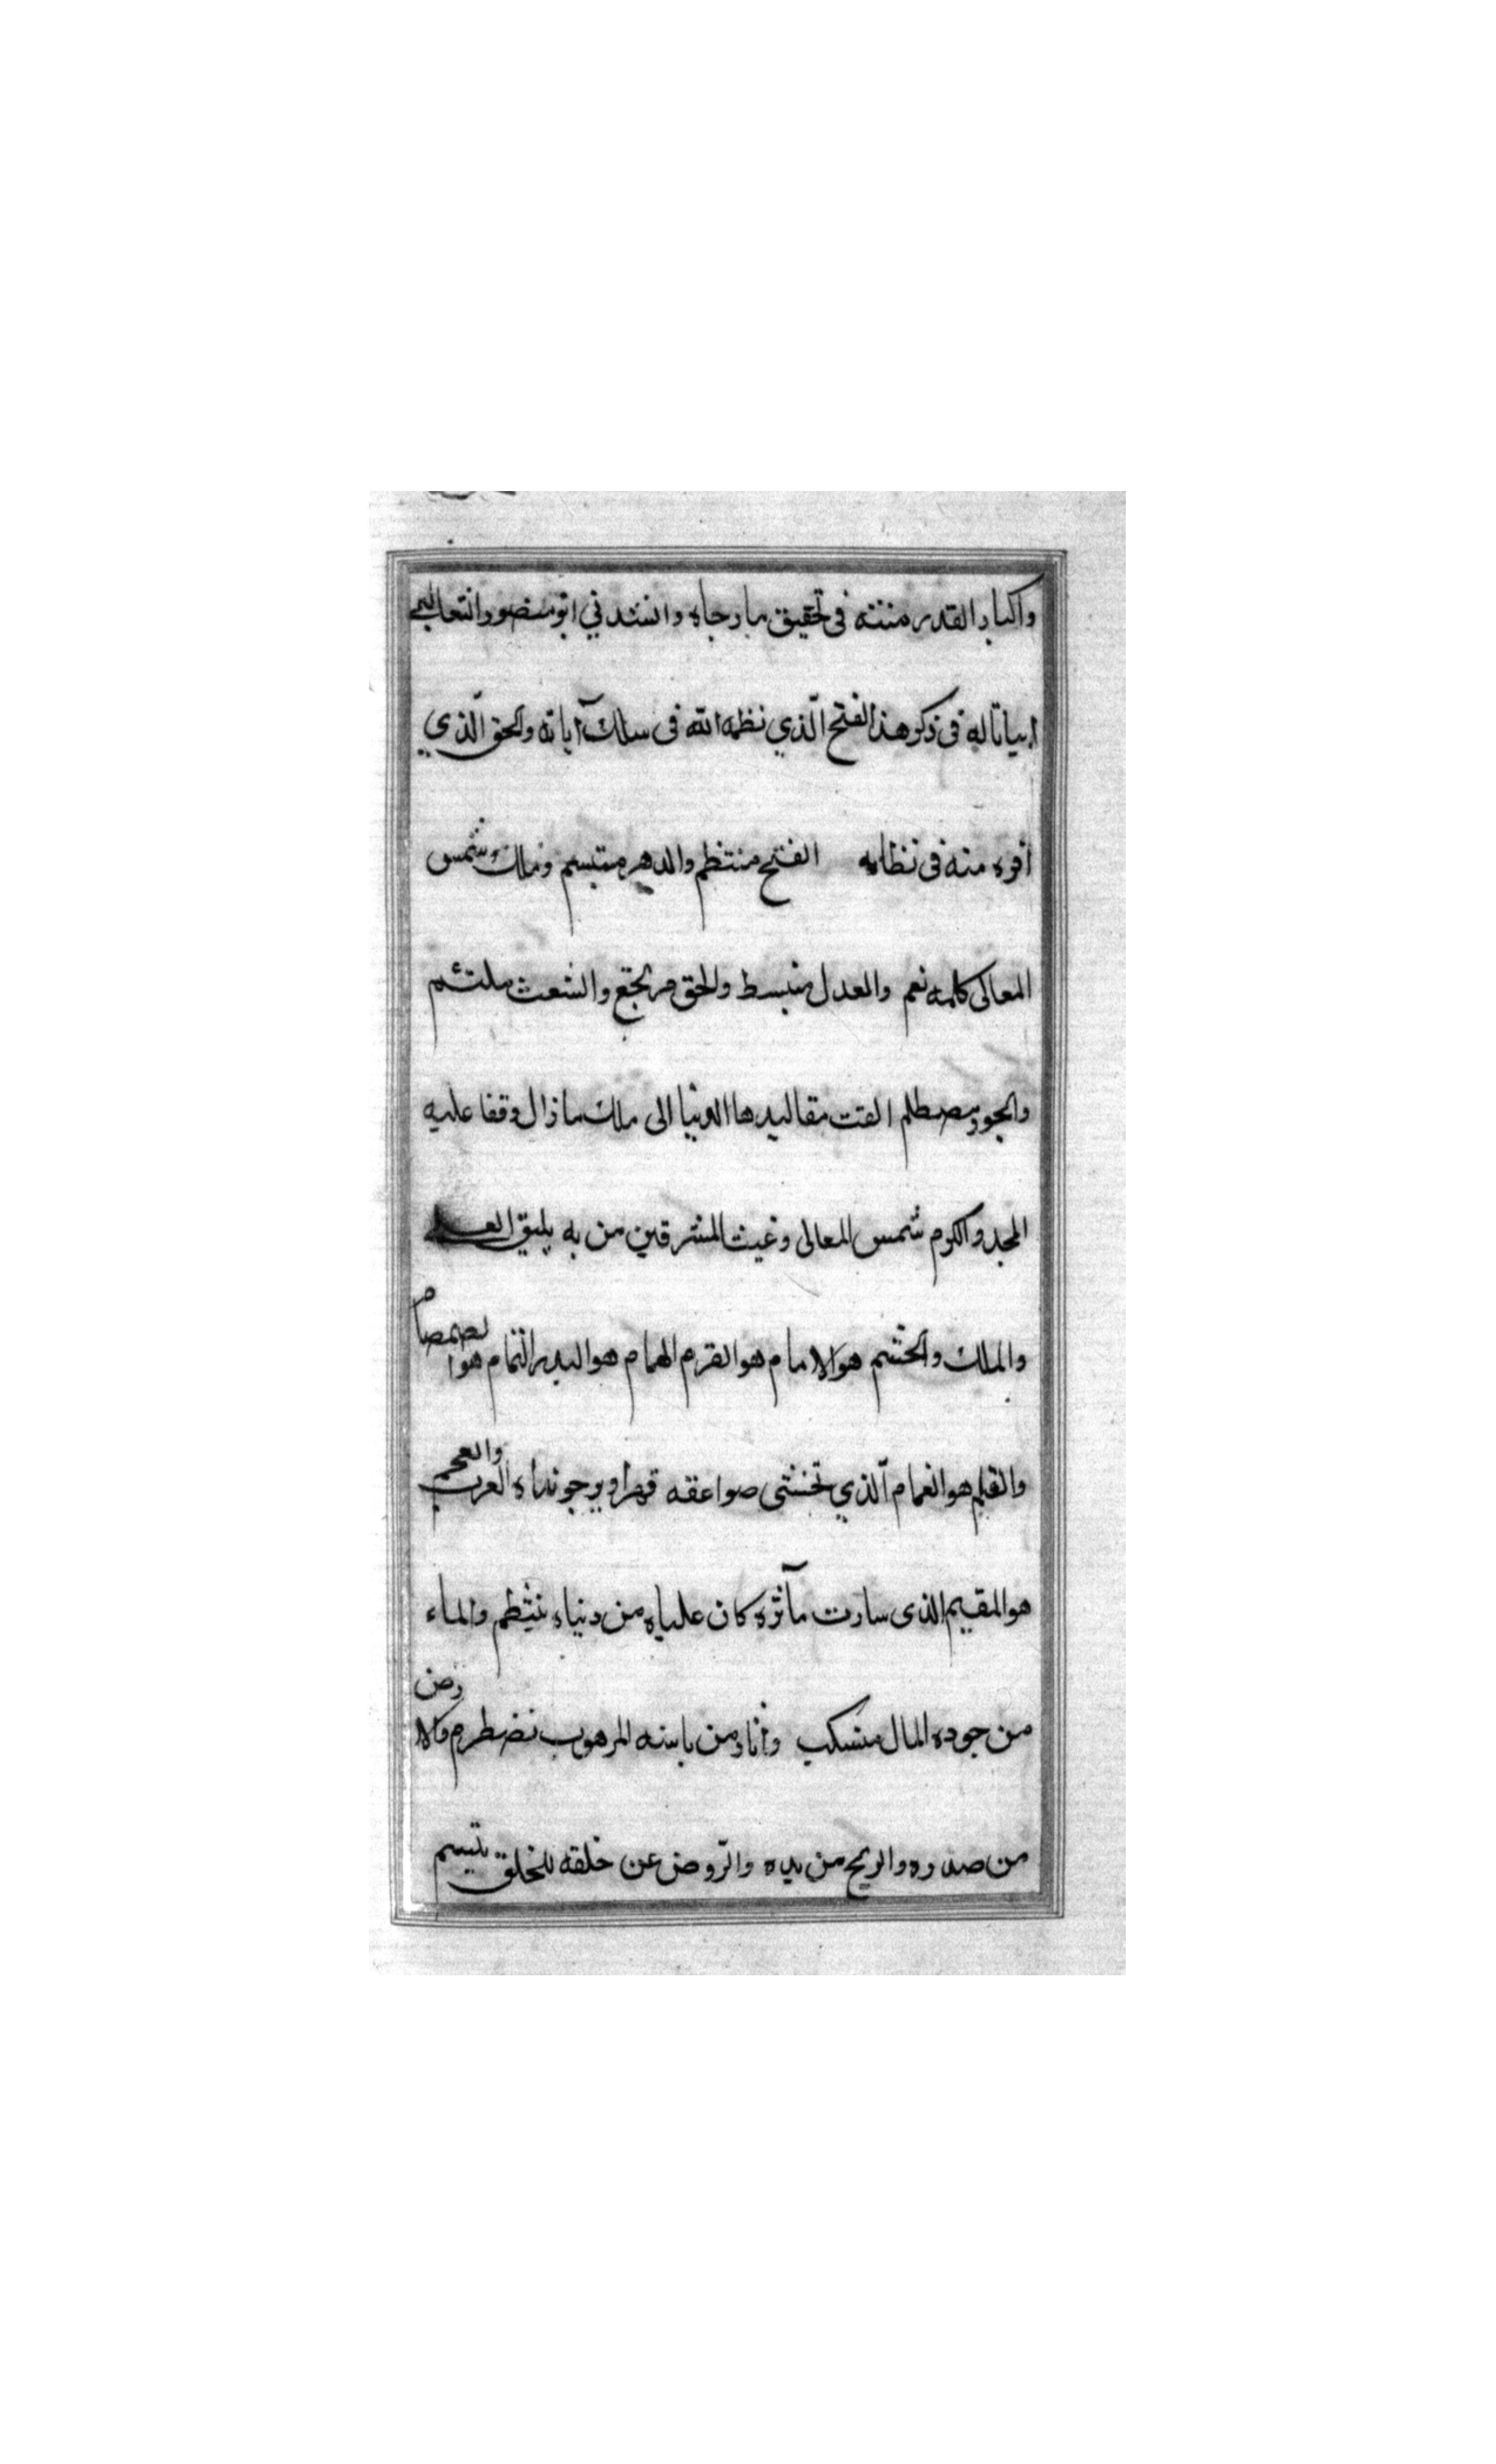 واكبار القدر منته فى تحقيق ما رجاه وانشدني ابو منصور الثعالبى
ابياتا له فى ذكر هذ الفتح الّذي نظمه الله فى سلك آياته والحق الّذي
أقره منه فى نظامه الفتح منتظم والدهر مبتسم وملك شمس
المعالى كلمه نعم والعدل منبسط والحق مرتجع والشعث ملتئم
والجور مصطلم القت مقاليدها الدنيا الى ملك ما زال وقفا عليه
المجد والكرم شمس المعالى وغيث المشرقين من به يليق العلى
والملك والحشم هو الامام هو القرم الهمام هو البدر التمام هو الصمصام
والقلم هو الغمام الّذي تخشى صواعقه قهرا ويرجو نداه العرب والعجم
هو المقيم الذى سارت مآثره كان علياه من دنياه ينتظم والماء
من جوده المال منسكب والنار من باسه المرهوب تضطرم والارض
من صدره والريح من يده والرّوض عن خلقه للخلق يتبسم